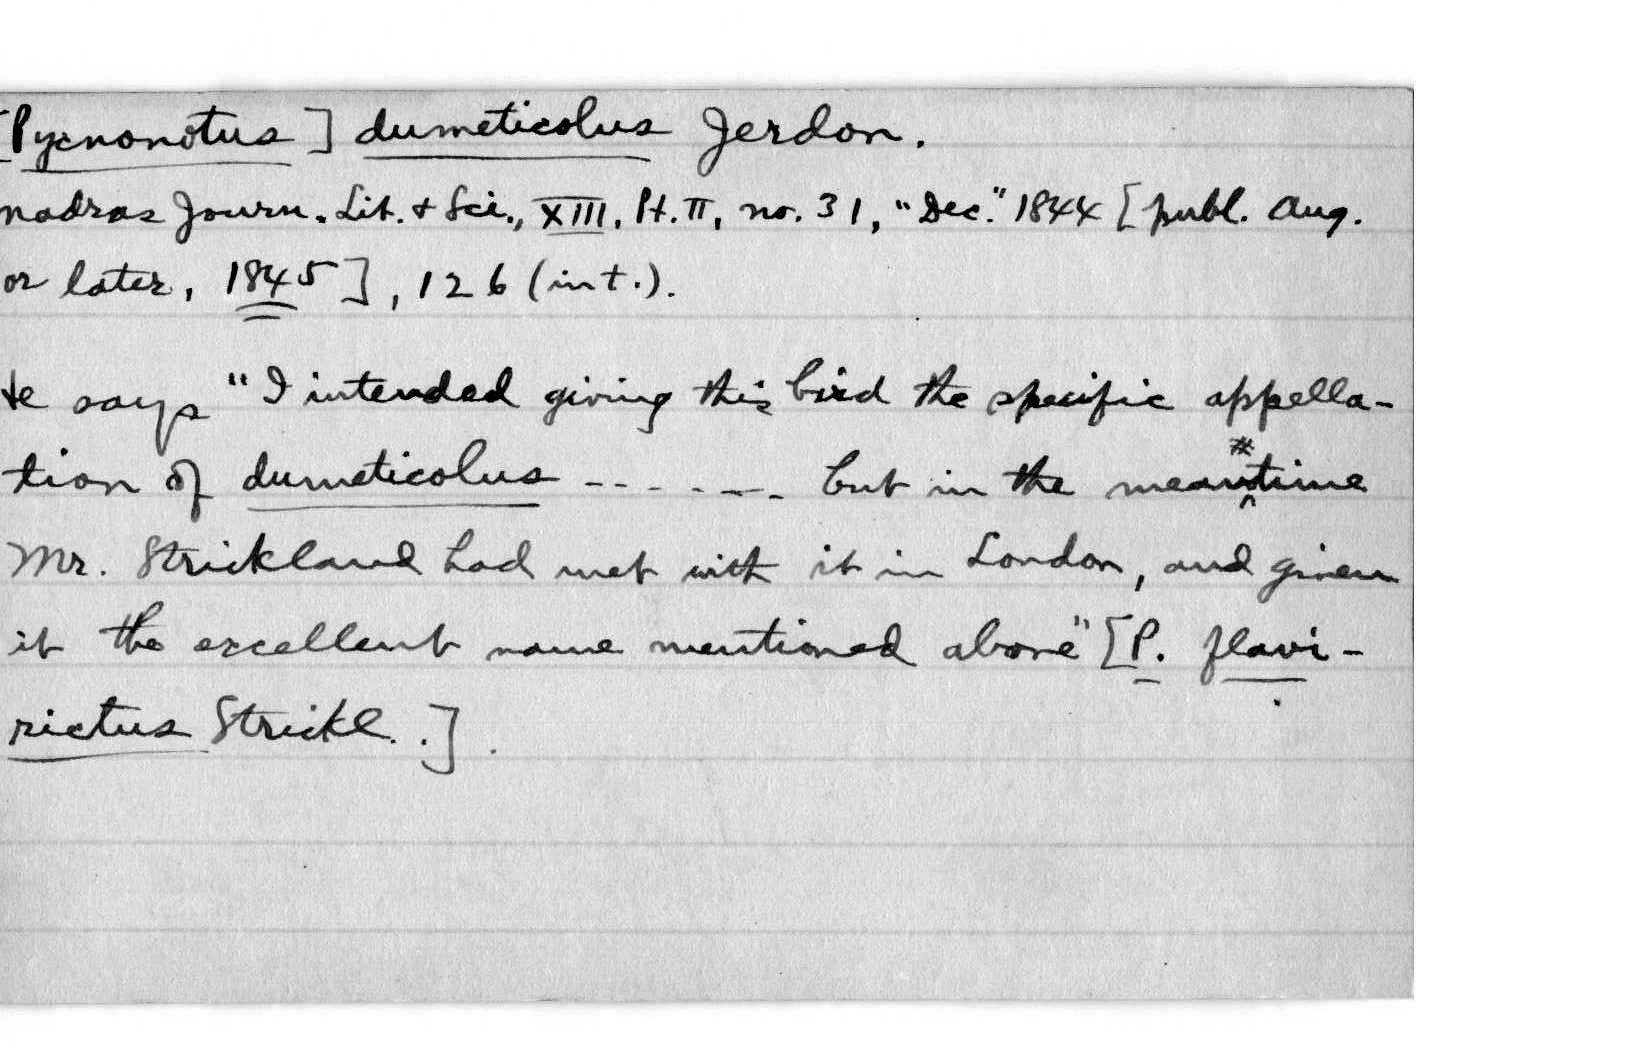 [Pycnonotus] dumeticolus Jerdon.
Madras Journ. Lit. & Sci., XIII, Pt. II, no. 31, "Dec." 1844 [publ. Aug.
or later, 1845], 126 (int.).
He says "I intended giving this bird the specific appella-
tion of dumeticolus - - - - - - - but in the mean#time
Mr. Strickland had met with it in London, and given
it the excellent name mentioned above" [P. flavi-
rictus Strickl..].